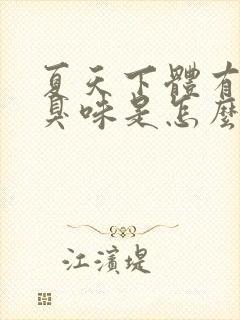 夏天下體有
臭味是怎麼
江濱堤